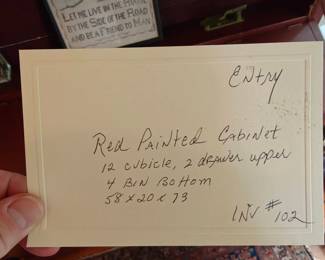 LET ME LIVE IN THE HOUSE
BY THE SIDE OF THE ROAD
AND BE A FRIEND TO MAN
Entry
Red Painted Cabinet
12 cubicle, 2 drawer upper
4 Bin Bottom
58 x 20 x 73
INV # 102